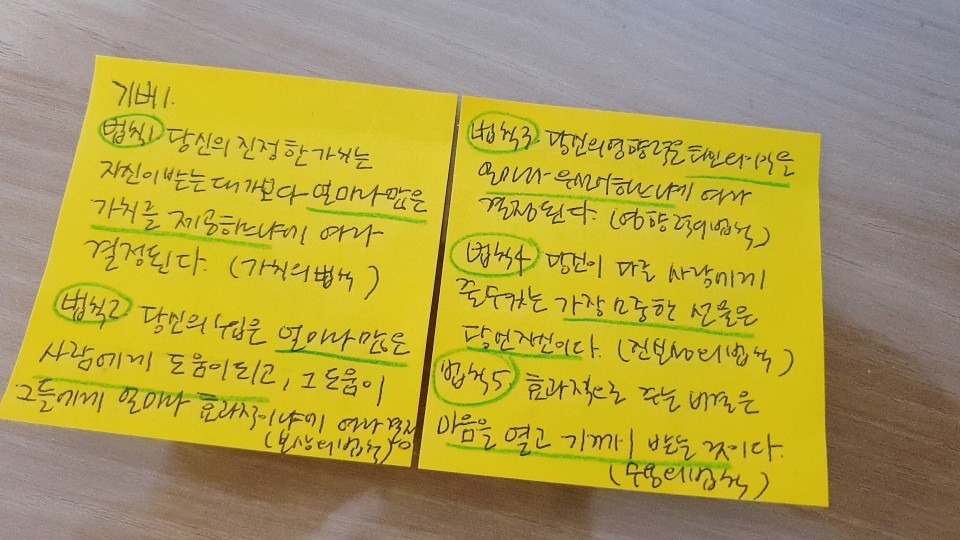 기버1.
법칙1 당신의 진정한 가치는
자신이 받는 대가보다 얼마나 많은
가치를 제공하느냐에 여라
결정된다. (가치의 법칙)
법칙2 당신의 수입은 얼마나 많은
사람에게 도움이 되고, 그 도움이
그들에게 얼마나 효과적이냐에 여라 결정
(보상의 법칙)
법칙3 당신의 영향력은 타인의 이익을
얼마나 우선시하느냐에 여라
결정된다 (영향력의 법칙)
법칙4 당신이 다른 사람에게
줄 수 있는 가장 소중한 선물은
당신 자신이다. (진실성의 법칙)
법칙5 효과적으로 주는 비결은
마음을 열고 기꺼이 받는 것이다.
(수용의 법칙)